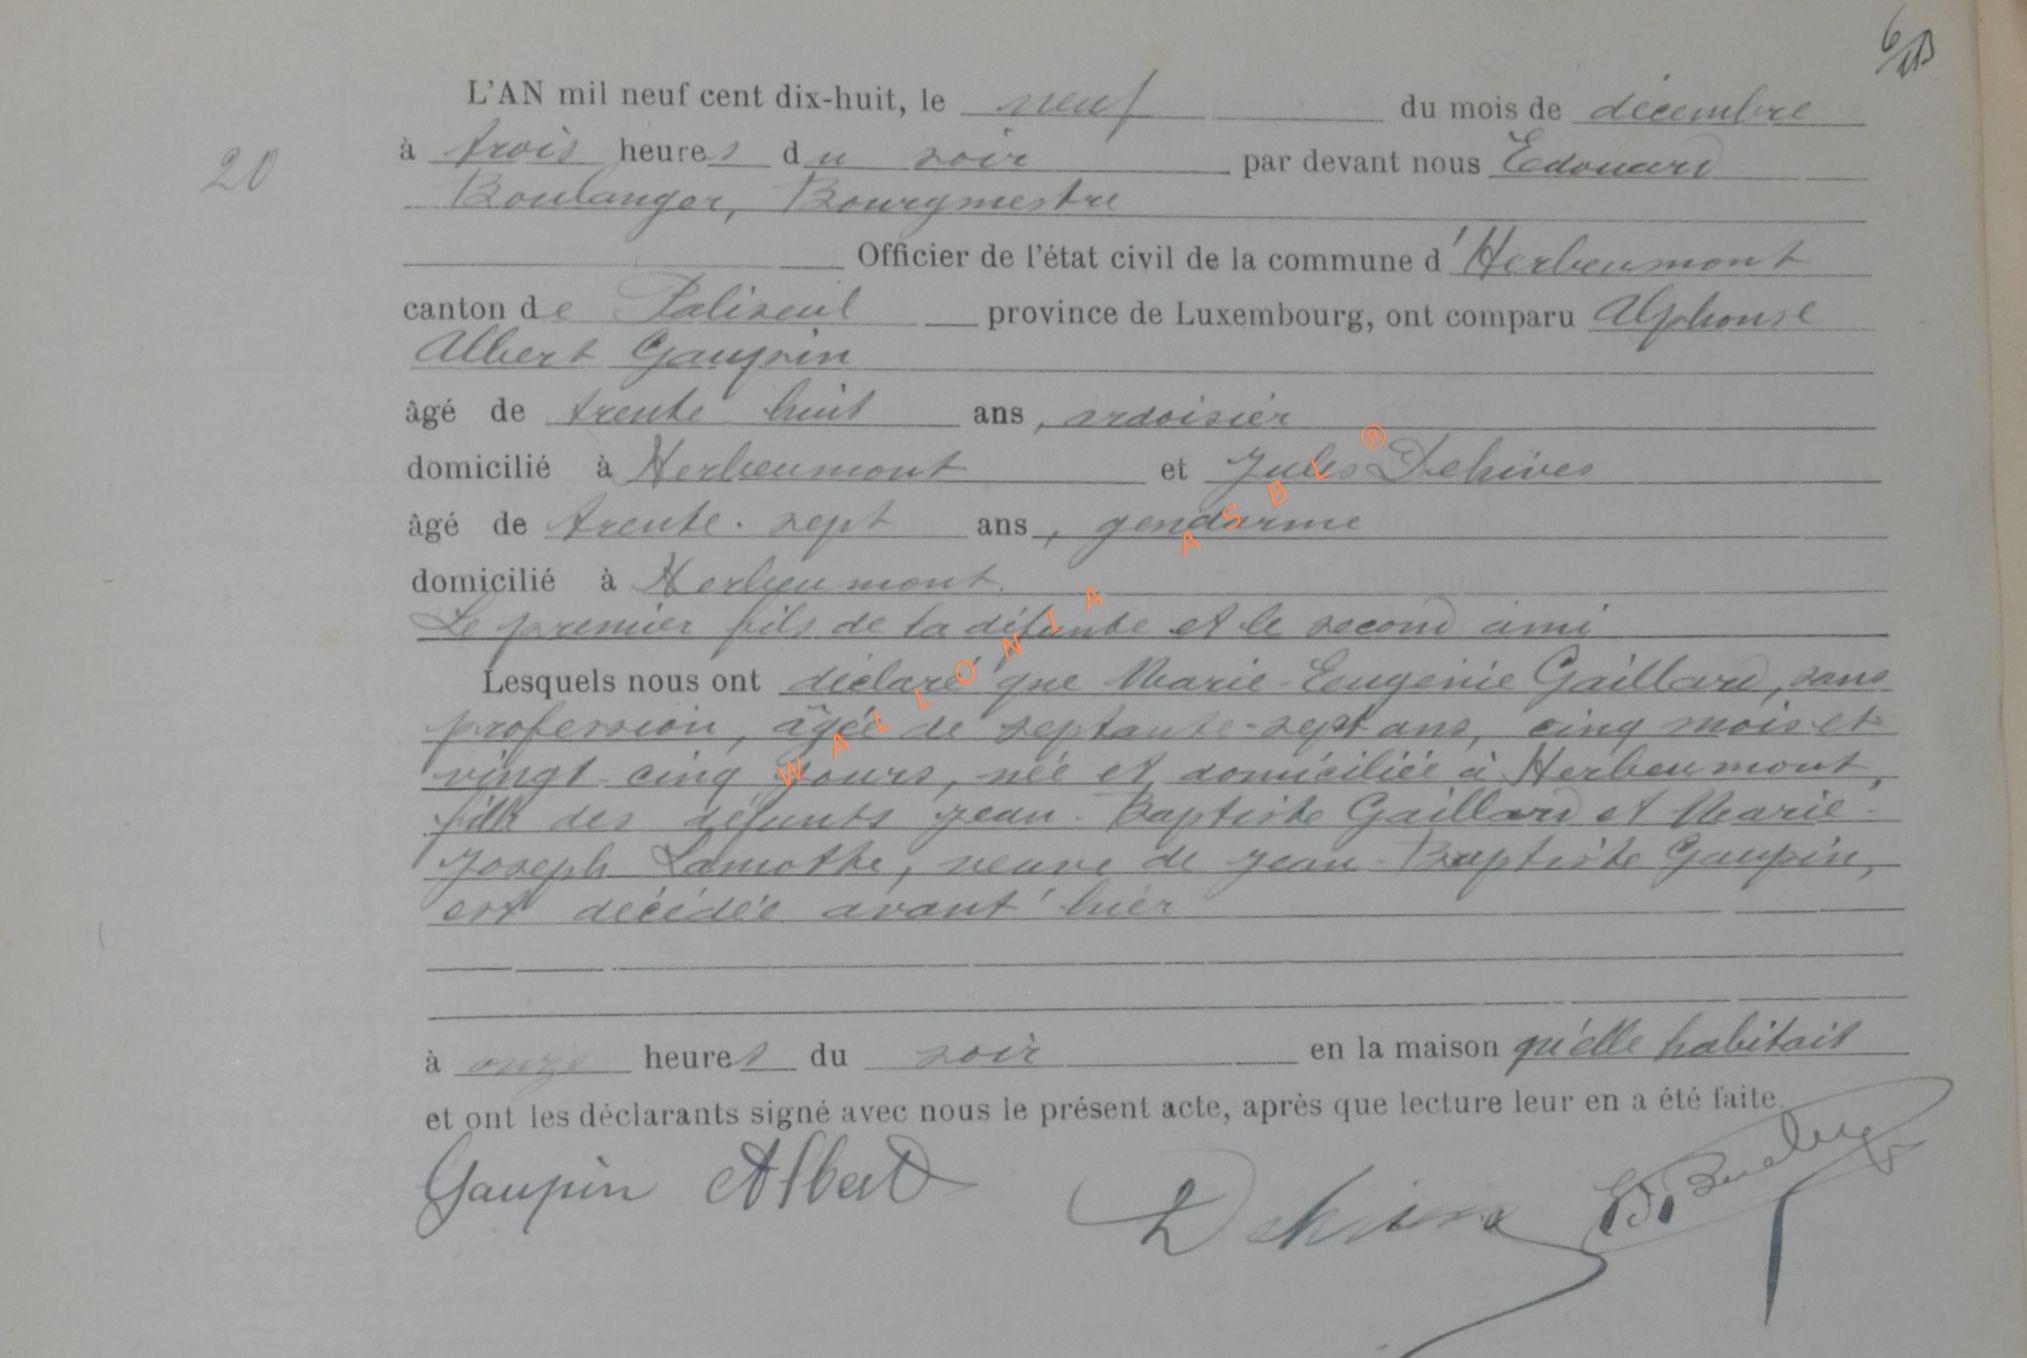 6/AB
L'AN mil neuf cent dix-huit, le neuf du mois de décembre
20
à trois heures du soir par devant nous Edouard
Boulanger, Bourgmestre
Officier de l'état civil de la commune d'Herbeumont
canton de Paliseul province de Luxembourg, ont comparu Alphonse
Albert Gaupin
âgé de trente huit ans, ardoisier
domicilié à Herbeumont et Jules Dehives
âgé de trente-sept ans, gendarme
domicilié à Herbeumont.
Le premier fils de la défunte et le second ami
Lesquels nous ont déclaré que Marie-Eugénie Gaillard, sans
profession, âgée de septante-sept ans, cinq mois et
vingt-cinq jours, née et domiciliée à Herbeumont,
fille des défunts Jean-Baptiste Gaillard et Marie-
Joseph Lamothe, veuve de Jean-Baptiste Gaupin,
est décédée avant'hier
à onze heures du soir en la maison qu'elle habitait
et ont les déclarants signé avec nous le présent acte, après que lecture leur en a été faite.
Gaupin Albert
WALLONIA ASBL ®